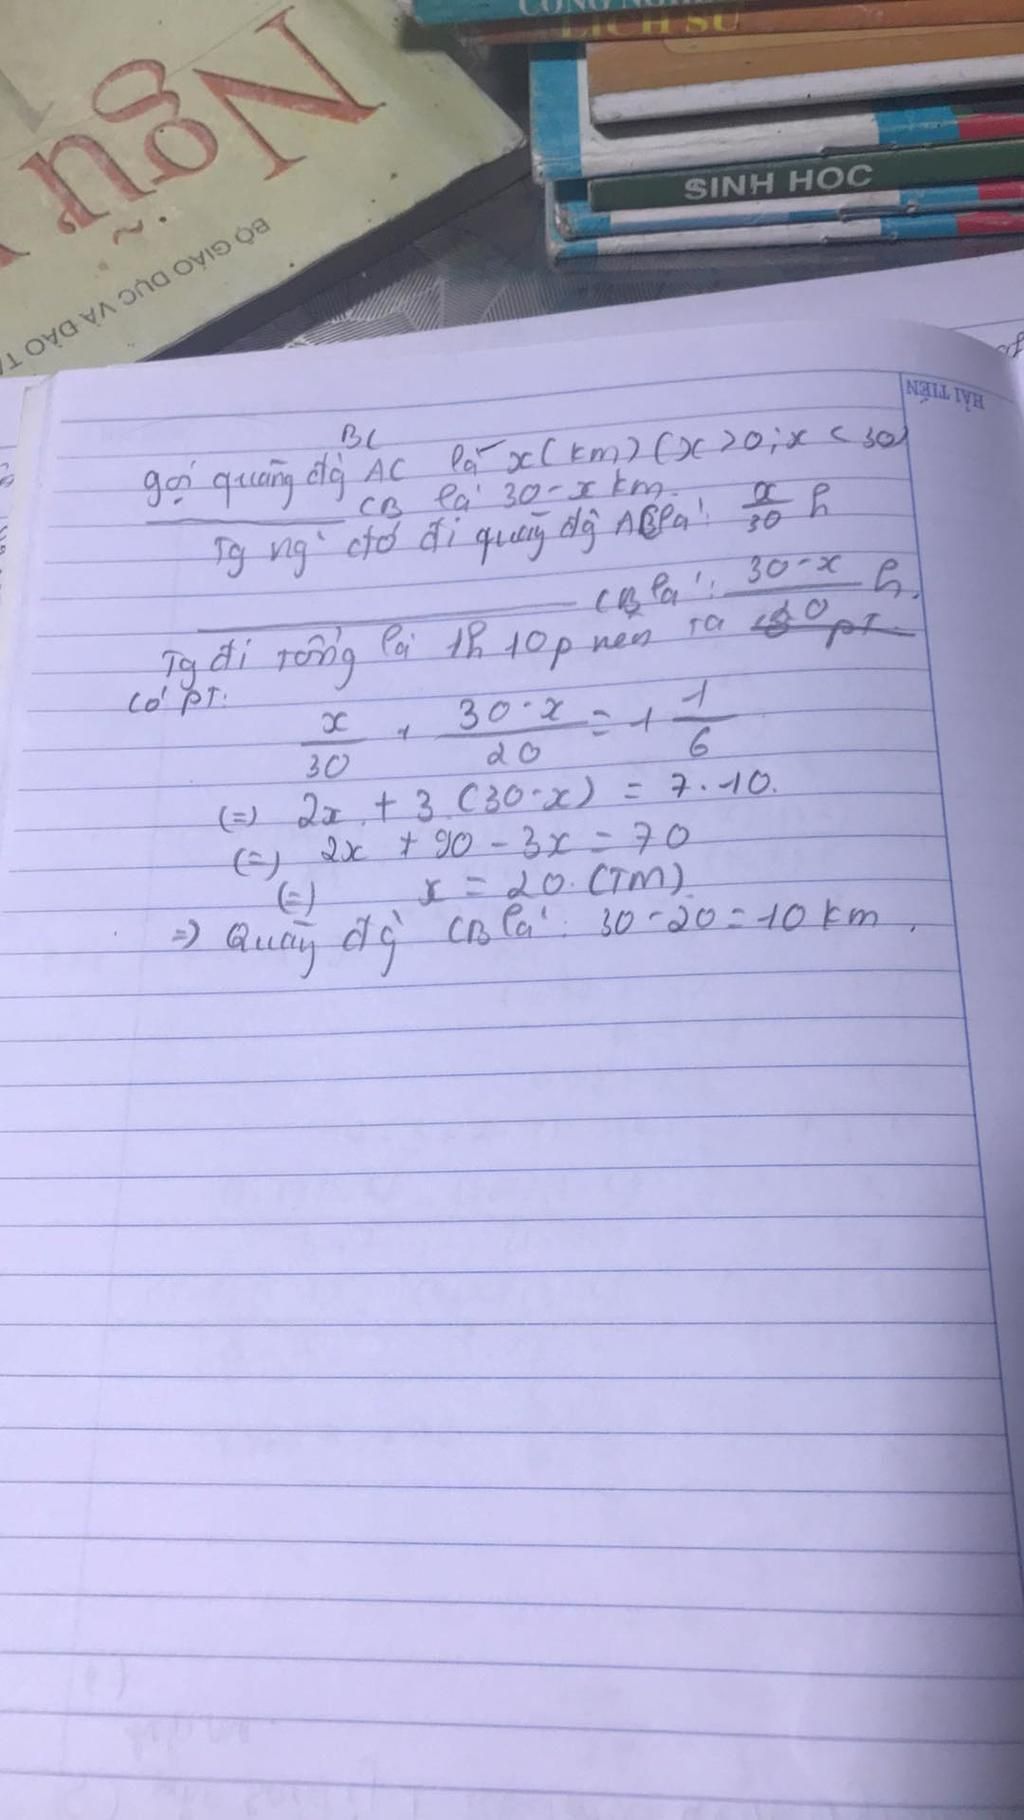 LỊCH SỬ
SINH HỌC
Ngữ
BỘ GIÁO DỤC VÀ ĐÀO TẠ
HẢI TIẾN
BC
gọi quãng đg AC là x(km) (x>0; x<30)
CB là 30-x km.
Tg ng đó đi quãng đg là: x/30 h
CB là: 30-x/20 h.
Tg đi tổng là 1h 10p nên ta pt
có PT:
x/30 + 30-x/20 = 1 1/6
(=) 2x + 3(30-x) = 7.10.
(=) 2x + 90 - 3x = 70
(=) x = 20. (TM)
=) Quãng đg CB là: 30-20=10 km.